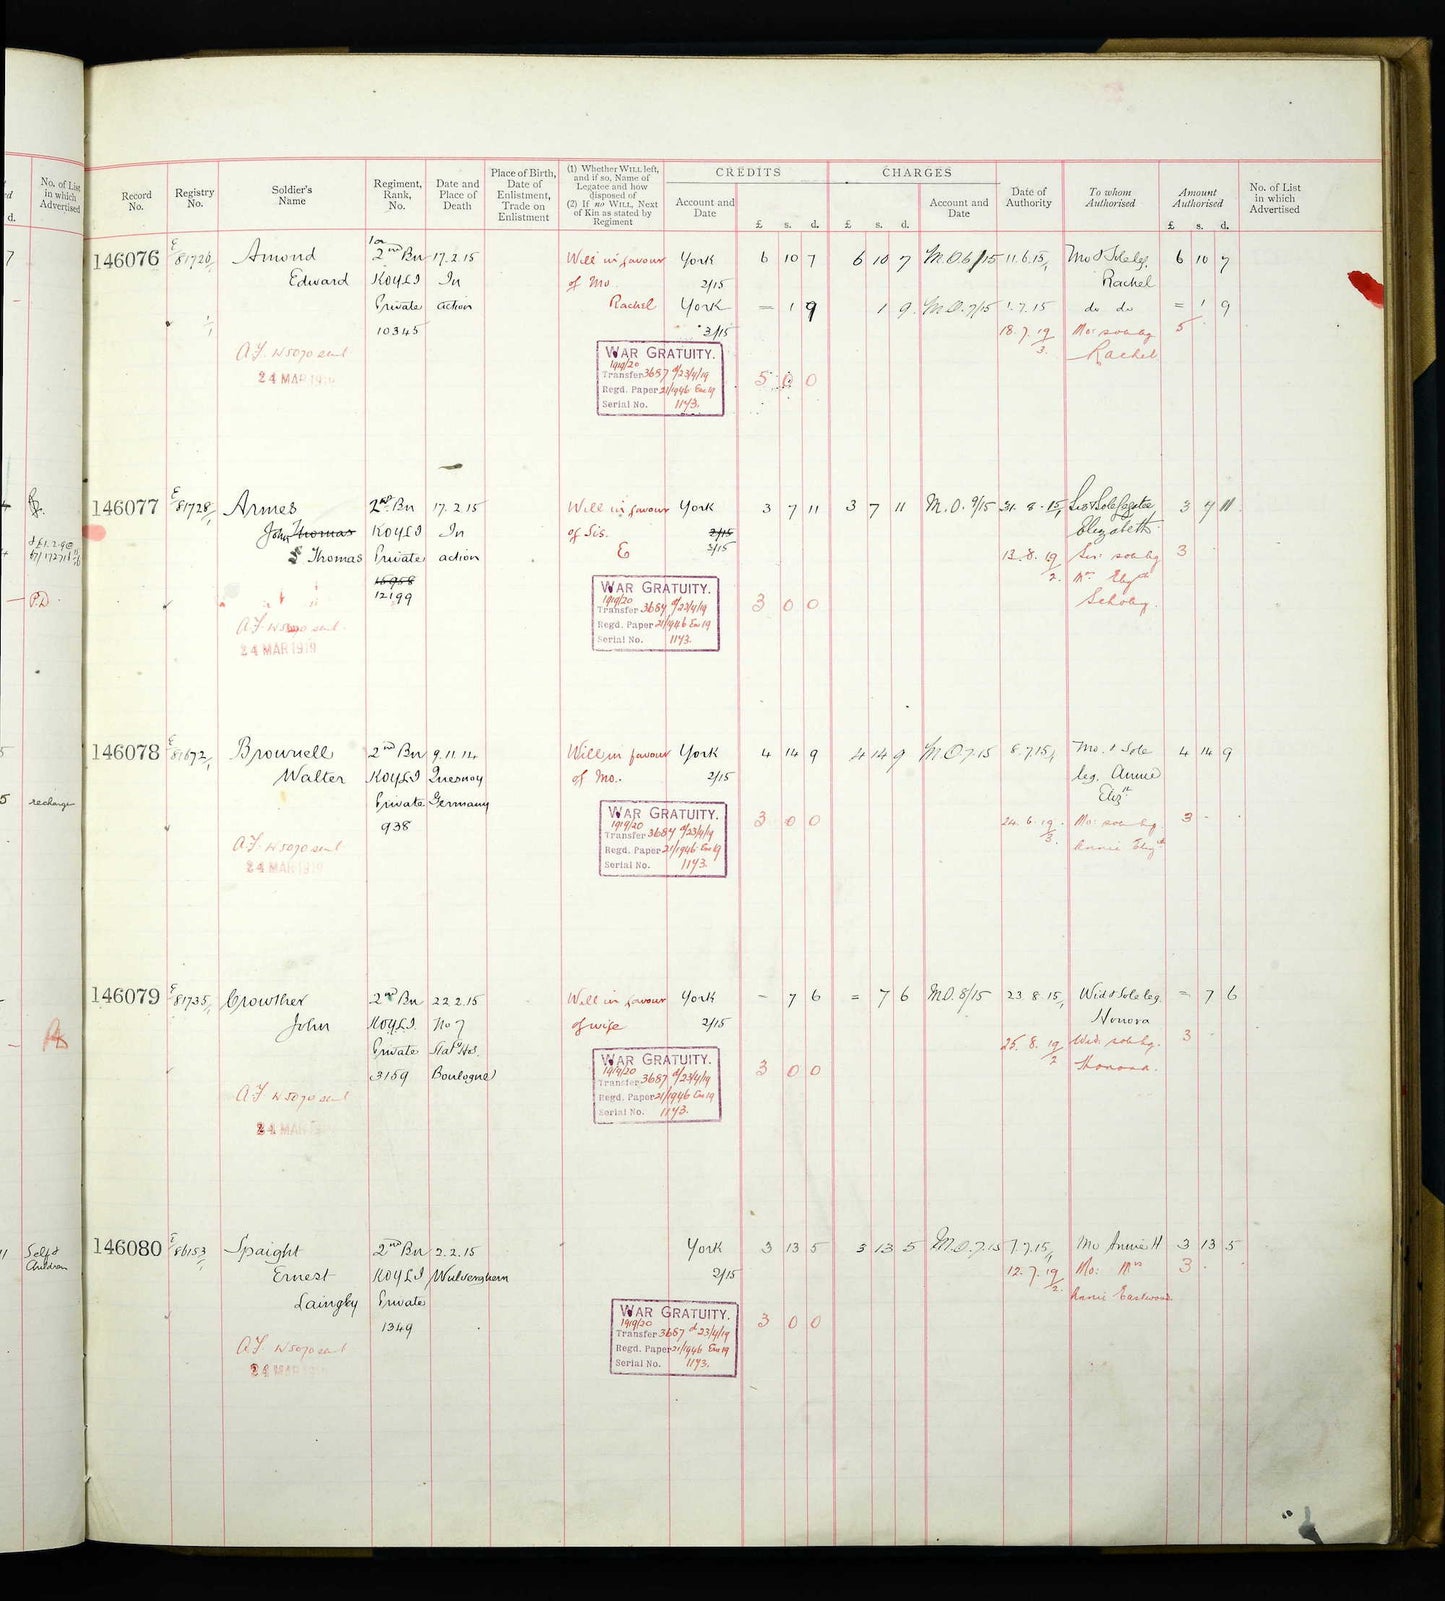 No. of List
in which
Advertised
d.
7
recharge
5
P.D.
Self &
Children
Record
No.
Registry
No.
Soldier's
Name
Regiment,
Rank,
No.
Date and
Place of
Death
Place of Birth,
Date of
Enlistment,
Trade on
Enlistment
(1) Whether WILL left,
and if so, Name of
Legatee and how
disposed of
(2) If no WILL, Next
of Kin as stated by
Regiment
CREDITS
Account and
Date
£ s. d.
CHARGES
£ s. d.
Account and
Date
Date of
Authority
To whom
Authorised
Amount
Authorised
£ s. d.
No. of List
in which
Advertised
146076 E/81726/1 Amond 2nd Bn 17.2.15 Will in favour York 6 10 7 6 10 7 M.O.6/15 11.6.15 Mo & Sole leg. 6 10 7
Edward KOYLI In of Mo. 2/15 Rachel
Private action Rachel York — 1 9 1 9 M.O.7/15 1.7.15 do do = 1 9
10345 3/15 18.7.19/3 Mo: sole leg 5
Rachel
A.F. W5070 sent
24 MAR 1919
WAR GRATUITY.
1919/20
Transfer 3687 d/23/4/19
Regd. Paper 21/1946 Em 19
Serial No. 1143.
5 0 0
146077 E/81728/1 Armes 2nd Bn 17.2.15 Will in favour York 3 7 11 3 7 11 M.O.9/15 31.8.15 Sis & Sole Legatee 3 7 11
John Thomas KOYLI In of Sis. 2/15 Elizabeth
Thomas Private action E 3/15 13.8.19/2. Sis: sole leg 3
15958 Mrs Elizth
12199 Scholey.
A.F. W5070 sent.
24 MAR 1919
WAR GRATUITY.
1919/20
Transfer 3687 d/23/4/19
Regd. Paper 21/1946 Em 19
Serial No. 1143.
3 0 0
146078 E/81672/1 Brownell 2nd Bn 9.11.14 Will in favour York 4 14 9 4 14 9 M.O.7.15 8.7.15 Mo. & Sole 4 14 9
Walter KOYLI Quesnoy of Mo. 2/15 leg. Annie
Private Germany Elizth
938 24.6.19/3. Mo: sole leg. 3
Annie Elizth
A.F. W5070 sent
24 MAR 1919
WAR GRATUITY.
1919/20
Transfer 3687 d/23/4/19
Regd. Paper 21/1946 Em 19
Serial No. 1143.
3 0 0
146079 E/81735/1 Crowther 2nd Bn 22.2.15 Will in favour York — 7 6 = 7 6 M.O.8/15 23.8.15 Wid & Sole leg. = 7 6
John KOYLI. No 7 of wife 2/15 Honora
Private Staty Hos. 25.8.19/2 Wid: sole leg. 3
3159 Boulogne Honora.
A.F. W5070 sent
24 MAR 1919
WAR GRATUITY.
1919/20
Transfer 3687 d/23/4/19
Regd. Paper 21/1946 Em 19
Serial No. 1143.
3 0 0
146080 E/86153/1 Spaight 2nd Bn 2.2.15 York 3 13 5 3 13 5 M.O.7.15 7.7.15 Mo Annie H 3 13 5
Ernest KOYLI Wulverghem 2/15 12.7.19/2. Mo: Mrs 3
Laingley Private Annie Eastwood.
1349
A.F. W5070 sent
24 MAR 1919
WAR GRATUITY.
1919/20
Transfer 3687 d 23/4/19
Regd. Paper 21/1946 Em 19
Serial No. 1143.
3 0 0